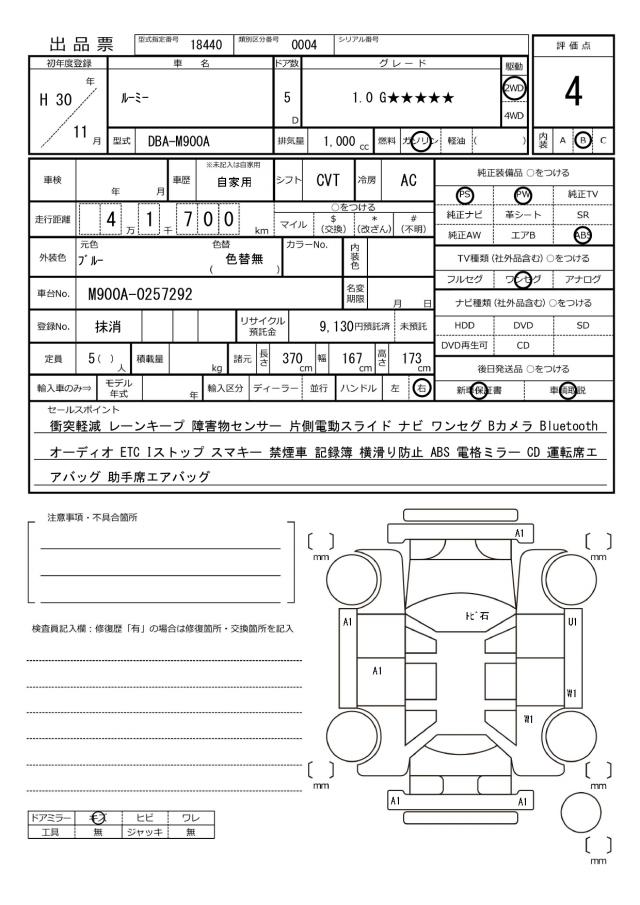 出品票 型式指定番号 18440 類別区分番号 0004 シリアル番号
評価点
4
初年度登録 車名 ドア数 グレード 駆動
H 30 年 / 11 月
ルーミー
5 D
1.0 G★★★★★
2WD
4WD
型式 DBA-M900A 排気量 1,000 cc 燃料 ガソリン 軽油 ( )
内装 A B C
車検 年 月 車歴 ※未記入は自家用 自家用 シフト CVT 冷房 AC
走行距離 4 万 1 千 7 0 0 km
○をつける
マイル $(交換) *(改ざん) #(不明)
外装色 元色 ブルー 色替 ( 色替無 ) カラーNo. 内装色
車台No. M900A-0257292 名変期限 月 日
登録No. 抹消 リサイクル預託金 9,130円預託済 未預託
定員 5( )人 積載量 kg 諸元 長さ 370 cm 幅 167 cm 高さ 173 cm
輸入車のみ⇒ モデル年式 年 輸入区分 ディーラー 並行 ハンドル 左 右
純正装備品 ○をつける
PS PW 純正TV
純正ナビ 革シート SR
純正AW エアB ABS
TV種類(社外品含む)○をつける
フルセグ ワンセグ アナログ
ナビ種類(社外品含む)○をつける
HDD DVD SD
DVD再生可 CD
後日発送品 ○をつける
新車保証書 車輌取説
セールスポイント
衝突軽減 レーンキープ 障害物センサー 片側電動スライド ナビ ワンセグ Bカメラ Bluetooth
オーディオ ETC Iストップ スマキー 禁煙車 記録簿 横滑り防止 ABS 電格ミラー CD 運転席エ
アバッグ 助手席エアバッグ
注意事項・不具合箇所
検査員記入欄:修復歴「有」の場合は修復箇所・交換箇所を記入
ドアミラー キズ ヒビ ワレ
工具 無 ジャッキ 無
A1
[ ] mm
[ ] mm
トビ石
A1
U1
A1
W1
W1
[ ] mm
[ ] mm
A1
A1
[ ] mm